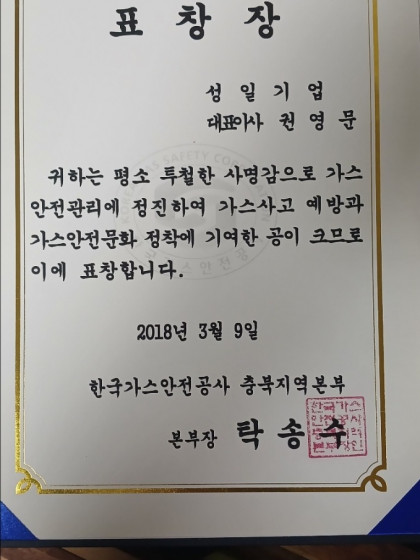 표창장
성일기업
대표이사 권영문
귀하는 평소 특철한 사명감으로 가스
안전관리에 정진하여 가스사고 예방과
가스안전문화 정착에 기여한 공이 크므로
이에 표창합니다.
2018년 3월 9일
한국가스안전공사 충북지역본부
본부장 탁송수
한국가스
안전공사
충북지역
본부장인